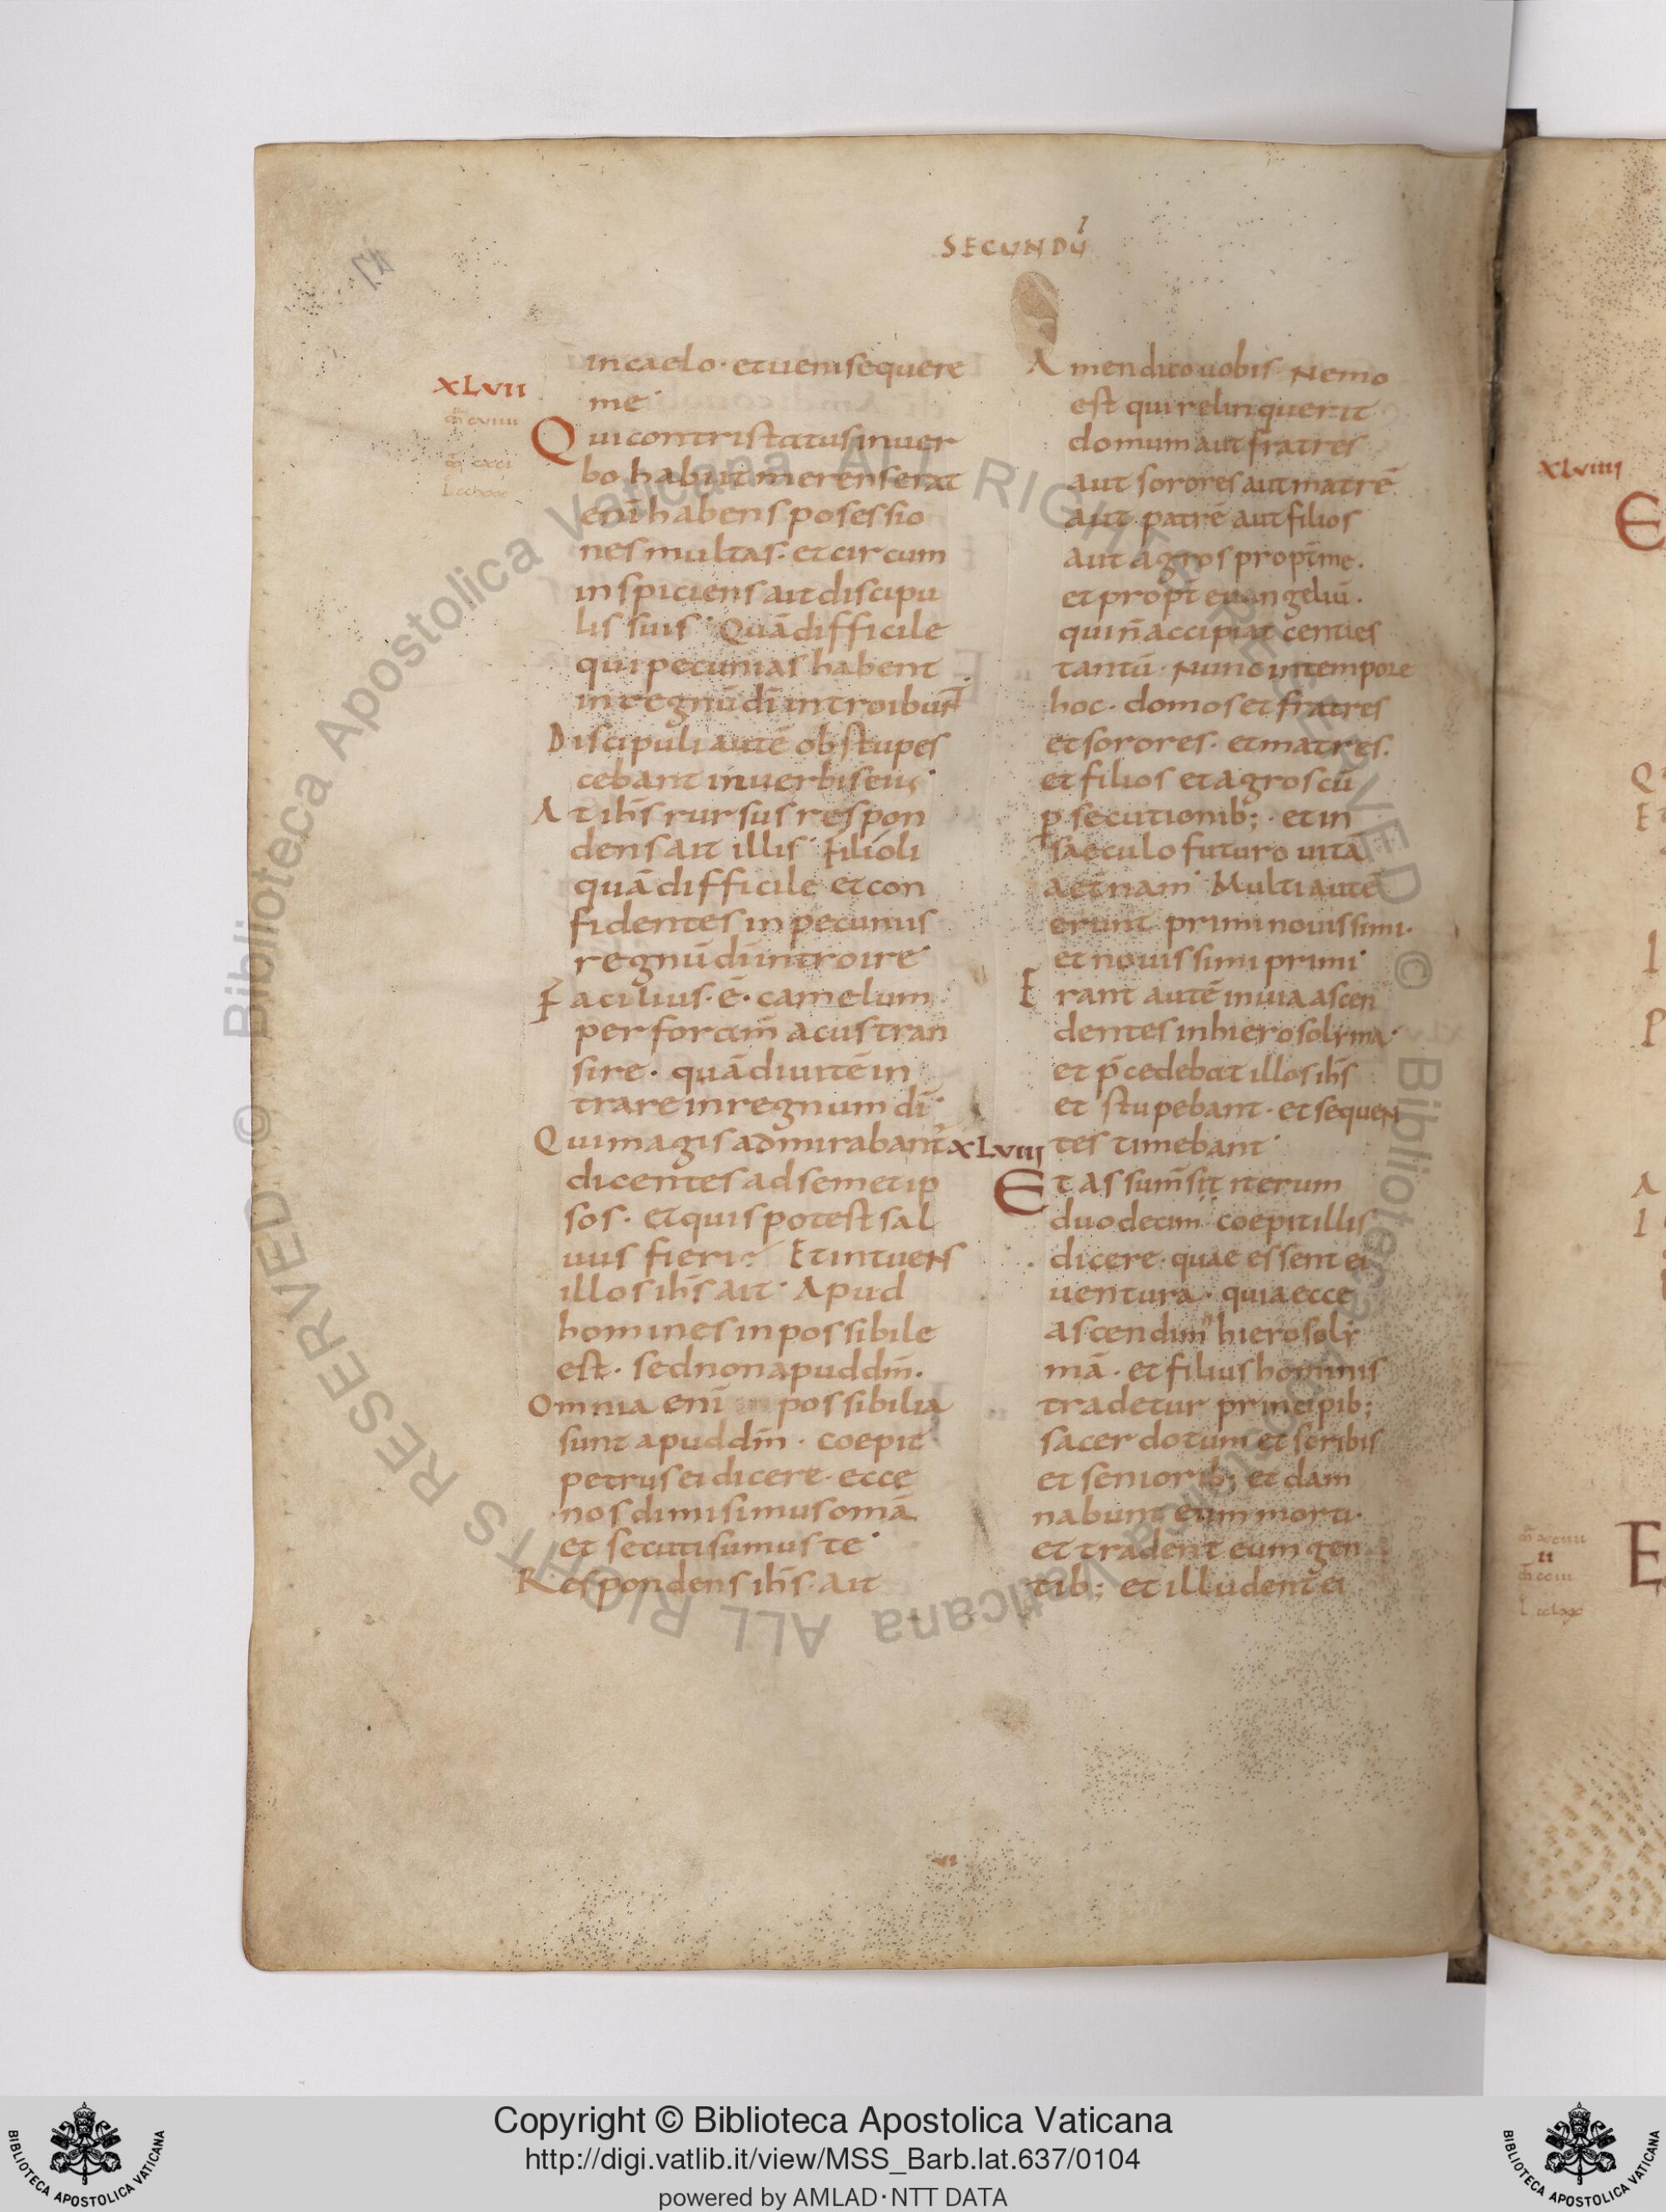 SECUNDŪ
in caelo · et ueni sequere
me·
XLVII
Qui contristatus in uer
bo habiit merens erat
enī habens posessio
nes multas · et circum
inspiciens ait discipu
lis suis · Quā difficile
qui pecunias habent
in regnū dī introibunt·
Discipuli autē obstupes
cebant in uerbis eius·
At ihs rursus respon
dens ait illis · Filioli
quā difficile et con
fidentes in pecuniis
regnū dī introire·
Facilius · ē · camelum
per foram̄ acus tran
sire · quā diuitē in
trare in regnum dī·
Qui magis admirabant̄
dicentes ad semetip
sos · et quis potest sal
uus fieri? Et intuens
illos ihs ait · Apud
homines inpossibile
est · sed non apud dm̄ ·
Omnia enī possibilia
sunt apud dm̄ · coepit
petrus ei dicere · ecce
nos dimisimus omā
et secuti sumus te·
Respondens ihs · ait
Amen dico uobis · Nemo
est qui relinquerit
domum aut fratres
aut sorores aut matrē
aut patrē aut filios
aut agros propt̄ me ·
et propt̄ euangeliū ·
qui n̄ accipiat centies
tantū · Nunc in tempore
hoc · domos et fratres
et sorores · et matres ·
et filios et agros cū
p̱secutionib; · et in
saeculo futuro uitā
aet̄nam · Multi autē
erunt primi nouissimi ·
et nouissimi primi·
Erant autē in uia ascen
dentes in hierosolyma·
et p̄cedebat illos ihs
et stupebant · et sequen
tes timebant·
XLVIII
Et assum̄sit iterum
duodecim coepit illis
dicere · quae essent ei
uentura · quia ecce
ascendim' hierosoly
mā · et filius hominis
tradetur principib;
sacerdotum et scribis
et seniorib; et dam
nabunt eum morti ·
et tradent eum gen
tib; et illudent ei
XLVIIII
Copyright © Biblioteca Apostolica Vaticana
http://digi.vatlib.it/view/MSS_Barb.lat.637/0104
powered by AMLAD·NTT DATA
BIBLIOTECA APOSTOLICA VATICANA
BIBLIOTECA APOSTOLICA VATICANA
© Biblioteca Apostolica Vaticana ALL RIGHTS RESERVED © Biblioteca Apostolica Vaticana ALL RIGHTS RESERVED